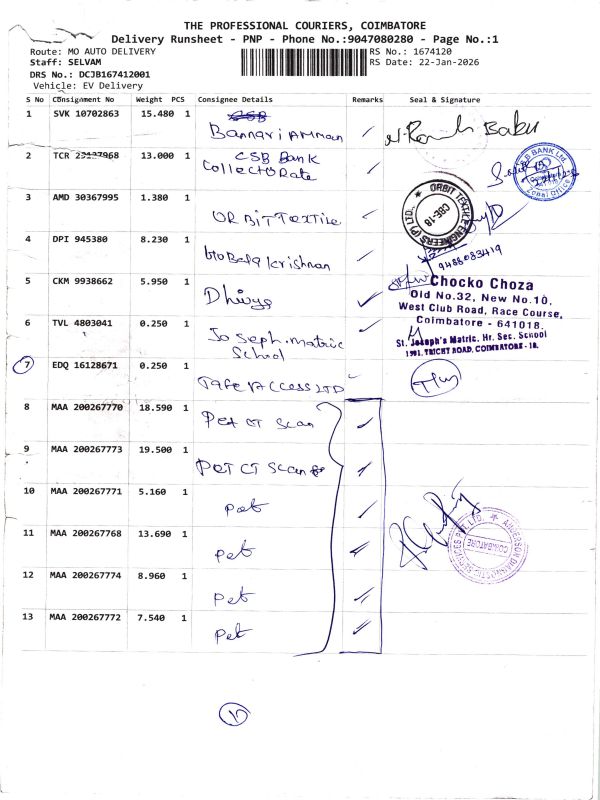 THE PROFESSIONAL COURIERS, COIMBATORE
Delivery Runsheet - PNP - Phone No.:9047080280 - Page No.:1
Route: MO AUTO DELIVERY
RS No.: 1674120
Staff: SELVAM
RS Date: 22-Jan-2026
DRS No.: DCJB167412001
Vehicle: EV Delivery
S No Consignment No Weight PCS Consignee Details Remarks Seal & Signature
1 SVK 10702863 15.480 1 Bannari Amman
2 TCR 23137968 13.000 1 CSB Bank
Collectorate
3 AMD 30367995 1.380 1 ORBIT TEXTILE
ORBIT TEXTILE ENGINEERS (P) LTD.
CBE-18
4 DPI 945380 8.230 1 Balakrishnan
9488083419
5 CKM 9938662 5.950 1 Dhivya
Chocko Choza
Old No.32, New No.10,
West Club Road, Race Course,
Coimbatore - 641018.
6 TVL 4803041 0.250 1 Joseph. matric
School
St. Joseph's Matric. Hr. Sec. School
TRICHY ROAD, COIMBATORE - 18.
7 EDQ 16128671 0.250 1 ACCESS LTD
8 MAA 200267770 18.590 1 Pet CT Scan
9 MAA 200267773 19.500 1 PET CT Scan
10 MAA 200267771 5.160 1 Pet
11 MAA 200267768 13.690 1 Pet
COIMBATORE
12 MAA 200267774 8.960 1 Pet
13 MAA 200267772 7.540 1 Pet